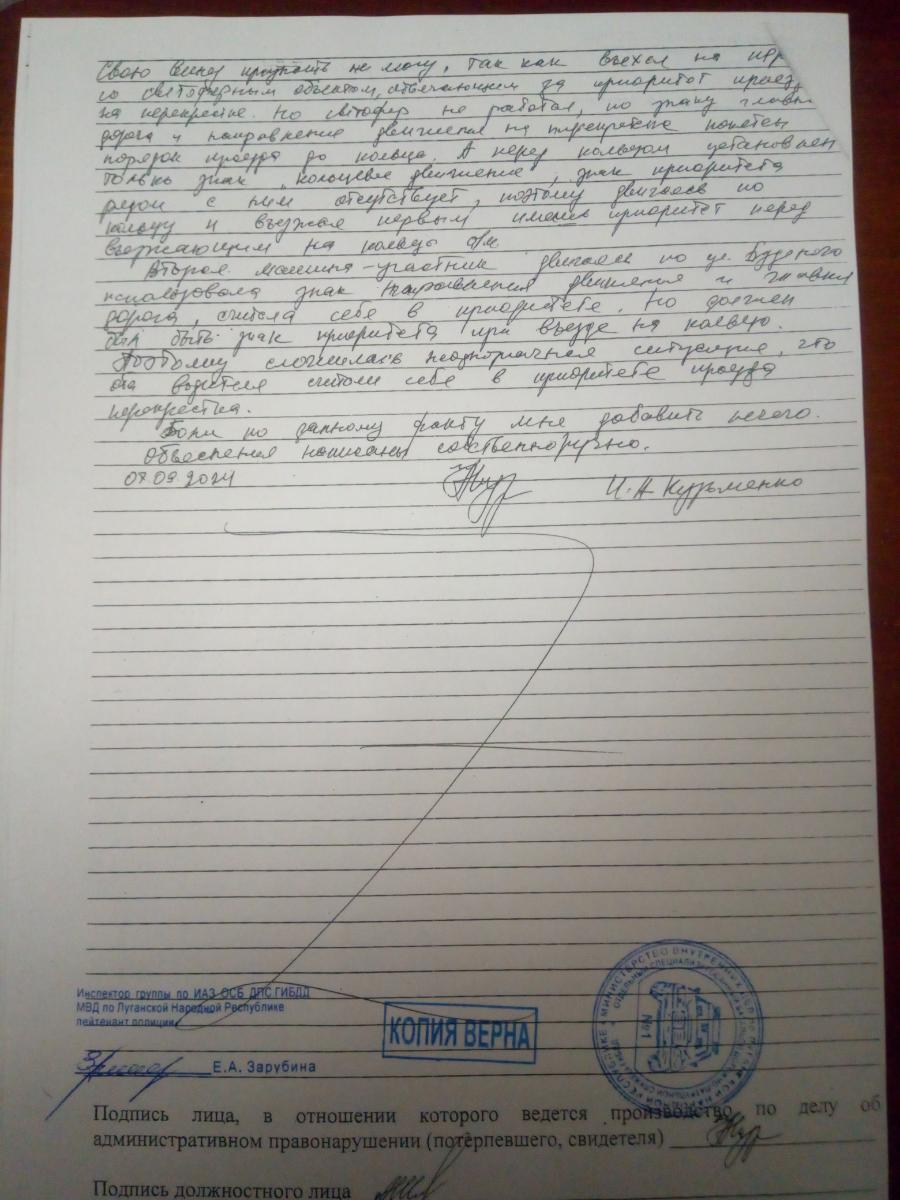 Свою вину признать не могу, так как въехал на пер
со светофорным объектом, отвечающим за приоритет проезд
на перекрестке. Но светофор не работал, по знаку главн
дорога и направление движения на перекрестке понятен
порядок проезда до кольца. А перед кольцом установлен
только знак "кольцевое движение", знак приоритета
рядом с ним отсутствует, поэтому двигаясь по
кольцу и въезжая первым имел приоритет перед
въезжающим на кольцо а/м
Вторая машина-участник двигаясь по ул. Буденого
использовала знак направления движения и главная
дорога, считая себя в приоритете. Но должен
был быть знак приоритета при въезде на кольцо.
Поэтому сложилась неоднозначная ситуация, что
оба водителя считали себя в приоритете проезда
перекрестка.
Более по данному факту мне добавить нечего.
Объяснения написаны собственноручно.
07.09.2024 И.А Кузьменко
Инспектор группы по ИАЗ ОСБ ДПС ГИБДД
МВД по Луганской Народной Республике
лейтенант полиции
КОПИЯ ВЕРНА
Е.А. Зарубина
№1
Подпись лица, в отношении которого ведется производство по делу об
административном правонарушении (потерпевшего, свидетеля)
Подпись должностного лица